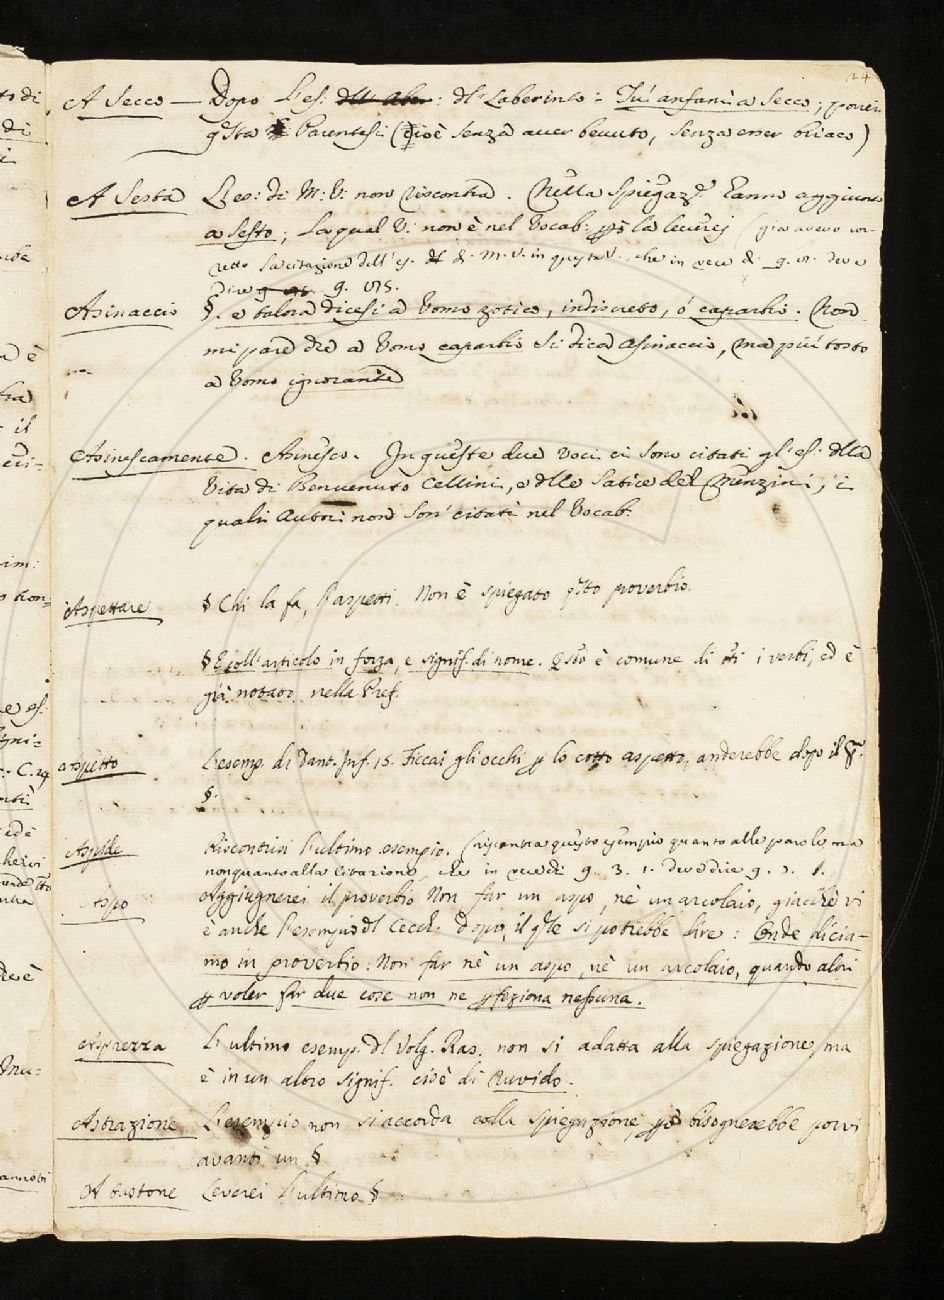 24
A Secco — Dopo l'es: dell' Aber: dl' Laberinto = Tu' anfani a secco; porrei
q.sta Parentesi (cioè senza aver bevuto, senza esser briaco)
A Sesta L'es: di M: V: non riscontra. Nella spiegaz.e hanno aggiunto
a sesto; la qual V: non è nel Vocab: la leverei (già avevo cor-
retto la citazione dell'es. di M. V. in questa V., che in vece di g. vi. deve
dire g. vis.
Asinaccio §. e talora dicesi a Uomo zotico, indiscreto, ó caparbio. Non
mi pare che a Uomo caparbio si dica Asinaccio, ma più tosto
a Uomo ignorante
Asinescamente. Asinesco. In queste due voci ci sono citati gl'es: dlla
Vita di Benvenuto Cellini, e dlle Satire del Menzini, i
quali Autori non son' citati nel Vocab:
Aspettare § Chi la fa, l'aspetti. Non è spiegato q.sto proverbio.
§ E coll'articolo in forza, e signif. di nome. Q.sto è comune di tti i verbi, ed è
già notato nella Pref.
Aspetto L'esemp. di Dant. Inf. 15. Ficcai gli occhi p lo cotto aspetto, anderebbe dopo il pr.
§.
Aspide Riscontrisi l'ultimo esempio. (riscontra questo esempio quanto alle parole, ma
non quanto alla citazione, che in vece di g. 3. 1. deve dire g. 3.
Aspo Aggiugnerei il proverbio Non far un aspo, nè un arcolaio, giacchè vi
è anche l'esempio dl Cecch. Dopo il q.le si potrebbe dire: Onde dicia-
mo in proverbio: Non far nè un aspo, nè un arcolaio, quando altri
p voler far due cose non ne pfeziona nessuna.
Asprezza L'ultimo esemp. dl Volg. Ras. non si adatta alla spiegazione, ma
è in un altro signif. cioè di Ruvido.
Astrazione L'esempio non si accorda colla spiegazione, pò bisognerebbe porvi
avanti un §
A bastone Leverei l'ultimo §